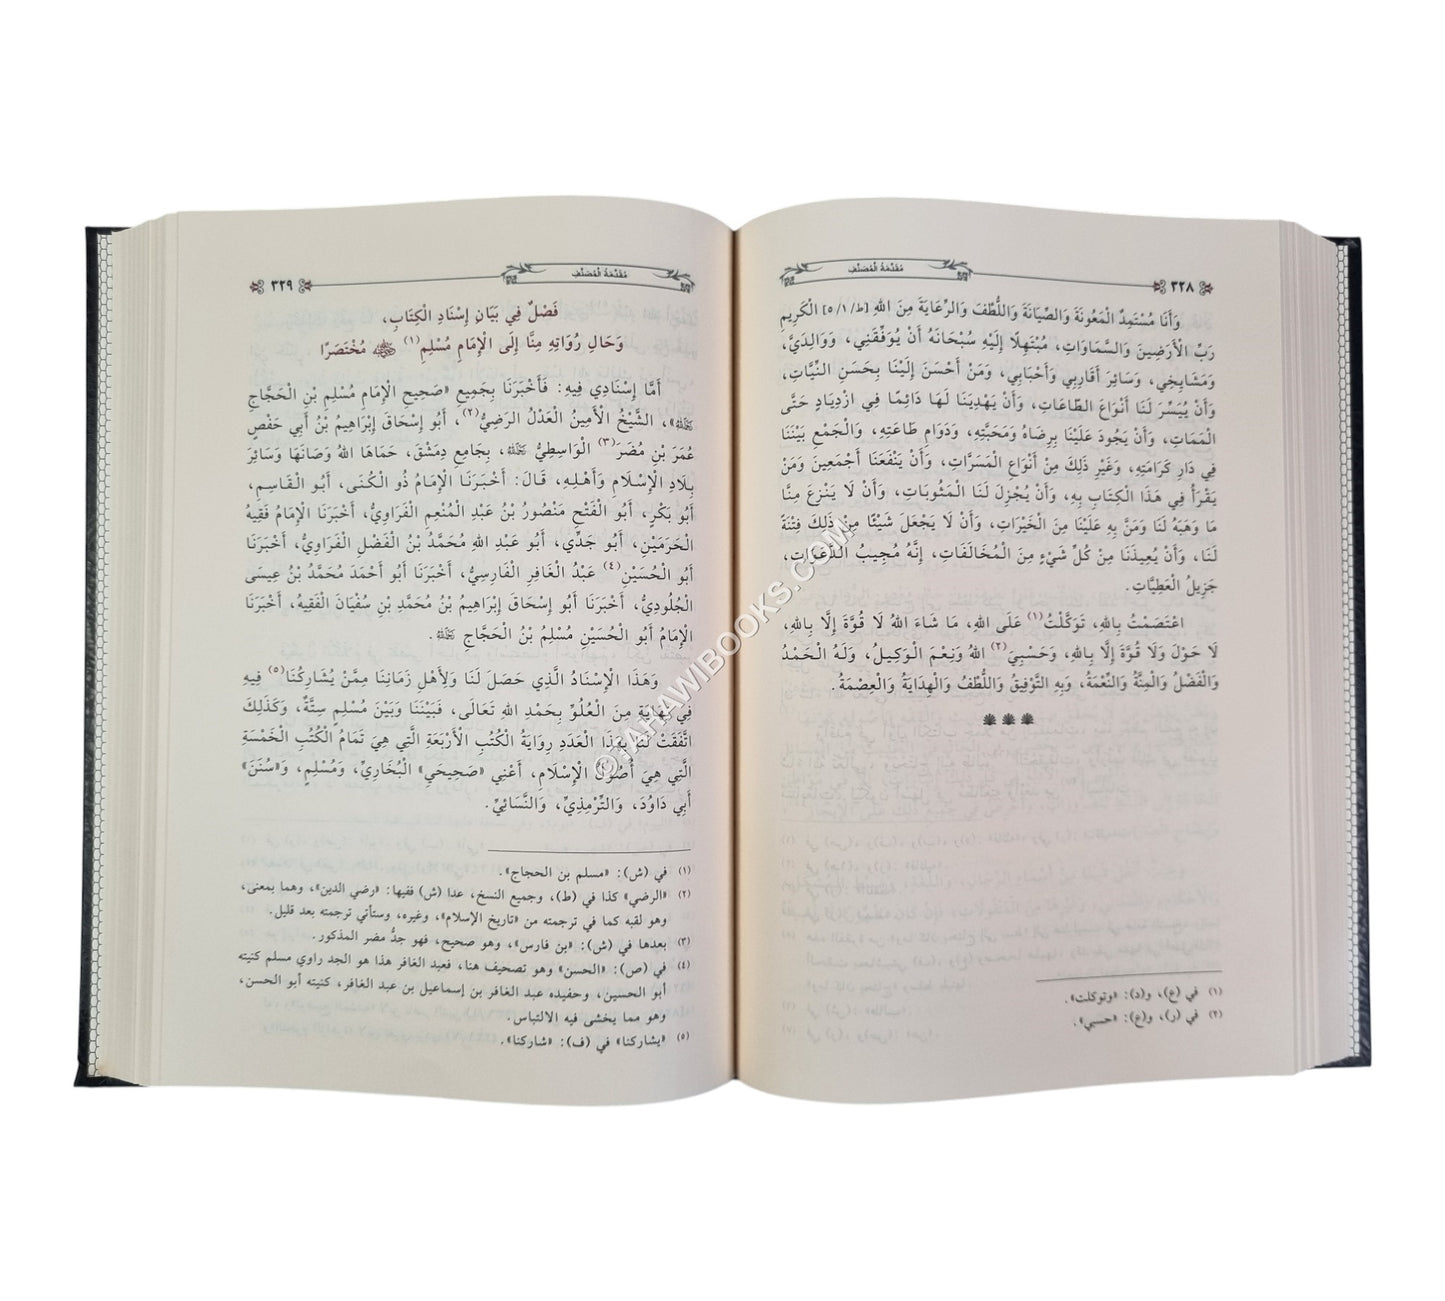 ٣٢٨
مُقَدِّمَةُ الْمُصَنِّفِ
وَأَنَا مُسْتَمِدٌّ الْمَعُونَةَ وَالصِّيَانَةَ وَاللُّطْفَ وَالرِّعَايَةَ مِنَ اللهِ [ط/١/٥] الْكَرِيمِ
رَبِّ الْأَرَضِينَ وَالسَّمَاوَاتِ، مُبْتَهِلًا إِلَيْهِ سُبْحَانَهُ أَنْ يُوَفِّقَنِي، وَوَالِدَيَّ،
وَمَشَايِخِي، وَسَائِرَ أَقَارِبِي وَأَحْبَابِي، وَمَنْ أَحْسَنَ إِلَيْنَا بِحَسَنِ النِّيَّاتِ،
وَأَنْ يُيَسِّرَ لَنَا أَنْوَاعَ الطَّاعَاتِ، وَأَنْ يَهْدِيَنَا لَهَا دَائِمًا فِي ازْدِيَادٍ حَتَّى
الْمَمَاتِ، وَأَنْ يَجُودَ عَلَيْنَا بِرِضَاهُ وَمَحَبَّتِهِ، وَدَوَامِ طَاعَتِهِ، وَالْجَمْعِ بَيْنَنَا
فِي دَارِ كَرَامَتِهِ، وَغَيْرِ ذَلِكَ مِنْ أَنْوَاعِ الْمَسَرَّاتِ، وَأَنْ يَنْفَعَنَا أَجْمَعِينَ وَمَنْ
يَقْرَأُ فِي هَذَا الْكِتَابِ بِهِ، وَأَنْ يُجْزِلَ لَنَا الْمَثُوبَاتِ، وَأَنْ لَا يَنْزِعَ مِنَّا
مَا وَهَبَهُ لَنَا وَمَنَّ بِهِ عَلَيْنَا مِنَ الْخَيْرَاتِ، وَأَنْ لَا يَجْعَلَ شَيْئًا مِنْ ذَلِكَ فِتْنَةً
لَنَا، وَأَنْ يُعِيذَنَا مِنْ كُلِّ شَيْءٍ مِنَ الْمُخَالَفَاتِ، إِنَّهُ مُجِيبُ الدَّعَوَاتِ،
جَزِيلُ الْعَطِيَّاتِ.
اعْتَصَمْتُ بِاللهِ، تَوَكَّلْتُ(١) عَلَى اللهِ، مَا شَاءَ اللهُ لَا قُوَّةَ إِلَّا بِاللهِ،
لَا حَوْلَ وَلَا قُوَّةَ إِلَّا بِاللهِ، وَحَسْبِيَ(٢) اللهُ وَنِعْمَ الْوَكِيلُ، وَلَهُ الْحَمْدُ
وَالْفَضْلُ وَالْمِنَّةُ وَالنِّعْمَةُ، وَبِهِ التَّوْفِيقُ وَاللُّطْفُ وَالْهِدَايَةُ وَالْعِصْمَةُ.
(١) في (ع)، و(د): «وتوكلت».
(٢) في (ر)، و(ع): «حسبي».
مُقَدِّمَةُ الْمُصَنِّفِ
٣٢٩
فَصْلٌ فِي بَيَانِ إِسْنَادِ الْكِتَابِ،
وَحَالِ رُوَاتِهِ مِنَّا إِلَى الْإِمَامِ مُسْلِمٍ(١) مُخْتَصَرًا
أَمَّا إِسْنَادِي فِيهِ: فَأَخْبَرَنَا بِجَمِيعِ «صَحِيحِ الْإِمَامِ مُسْلِمِ بْنِ الْحَجَّاجِ
»، الشَّيْخُ الْأَمِينُ الْعَدْلُ الرَضِيُّ(٢)، أَبُو إِسْحَاقَ إِبْرَاهِيمُ بْنُ أَبِي حَفْصٍ
عُمَرَ بْنِ مُضَرَ(٣) الْوَاسِطِيُّ، بِجَامِعِ دِمَشْقَ، حَمَاهَا اللهُ وَصَانَهَا وَسَائِرَ
بِلَادِ الْإِسْلَامِ وَأَهْلِهِ، قَالَ: أَخْبَرَنَا الْإِمَامُ ذُو الْكُنَى، أَبُو الْقَاسِمِ،
أَبُو بَكْرٍ، أَبُو الْفَتْحِ مَنْصُورُ بْنُ عَبْدِ الْمُنْعِمِ الْفَرَاوِيُّ، أَخْبَرَنَا الْإِمَامُ فَقِيهُ
الْحَرَمَيْنِ، أَبُو جَدِّي، أَبُو عَبْدِ اللهِ مُحَمَّدُ بْنُ الْفَضْلِ الْفَرَاوِيُّ، أَخْبَرَنَا
أَبُو الْحُسَيْنِ(٤) عَبْدُ الْغَافِرِ الْفَارِسِيُّ، أَخْبَرَنَا أَبُو أَحْمَدَ مُحَمَّدُ بْنُ عِيسَى
الْجُلُودِيُّ، أَخْبَرَنَا أَبُو إِسْحَاقَ إِبْرَاهِيمُ بْنُ مُحَمَّدِ بْنِ سُفْيَانَ الْفَقِيهُ، أَخْبَرَنَا
الْإِمَامُ أَبُو الْحُسَيْنِ مُسْلِمُ بْنُ الْحَجَّاجِ.
وَهَذَا الْإِسْنَادُ الَّذِي حَصَلَ لَنَا وَلِأَهْلِ زَمَانِنَا مِمَّنْ يُشَارِكُنَا(٥) فِيهِ
فِي نِهَايَةٍ مِنَ الْعُلُوِّ بِحَمْدِ اللهِ تَعَالَى، فَبَيْنَنَا وَبَيْنَ مُسْلِمٍ سِتَّةٌ، وَكَذَلِكَ
اتَّفَقَتْ لَنَا بِهَذَا الْعَدَدِ رِوَايَةُ الْكُتُبِ الْأَرْبَعَةِ الَّتِي هِيَ تَمَامُ الْكُتُبِ الْخَمْسَةِ
الَّتِي هِيَ أُصُولُ الْإِسْلَامِ، أَعْنِي «صَحِيحَيِ» الْبُخَارِيِّ، وَمُسْلِمٍ، وَ«سُنَنَ»
أَبِي دَاوُدَ، وَالتِّرْمِذِيِّ، وَالنَّسَائِيِّ.
(١) في (ش): «مسلم بن الحجاج».
(٢) «الرضي» كذا في (ط)، وجميع النسخ، عدا (ش) ففيها: «رضي الدين»، وهما بمعنى،
وهو لقبه كما في ترجمته من «تاريخ الإسلام»، وغيره، وستأتي ترجمته بعد قليل.
(٣) بعدها في (ش): «بن فارس»، وهو صحيح، فهو جدُّ مضر المذكور.
(٤) في (ص): «الحسن» وهو تصحيف هنا، فعبد الغافر هذا هو الجد راوي مسلم كنيته
أبو الحسين، وحفيده عبد الغافر بن إسماعيل بن عبد الغافر، كنيته أبو الحسن،
وهو مما يخشى فيه الالتباس.
(٥) «يشاركنا» في (ف): «شاركنا».
©TAHAWIBOOKS.COM